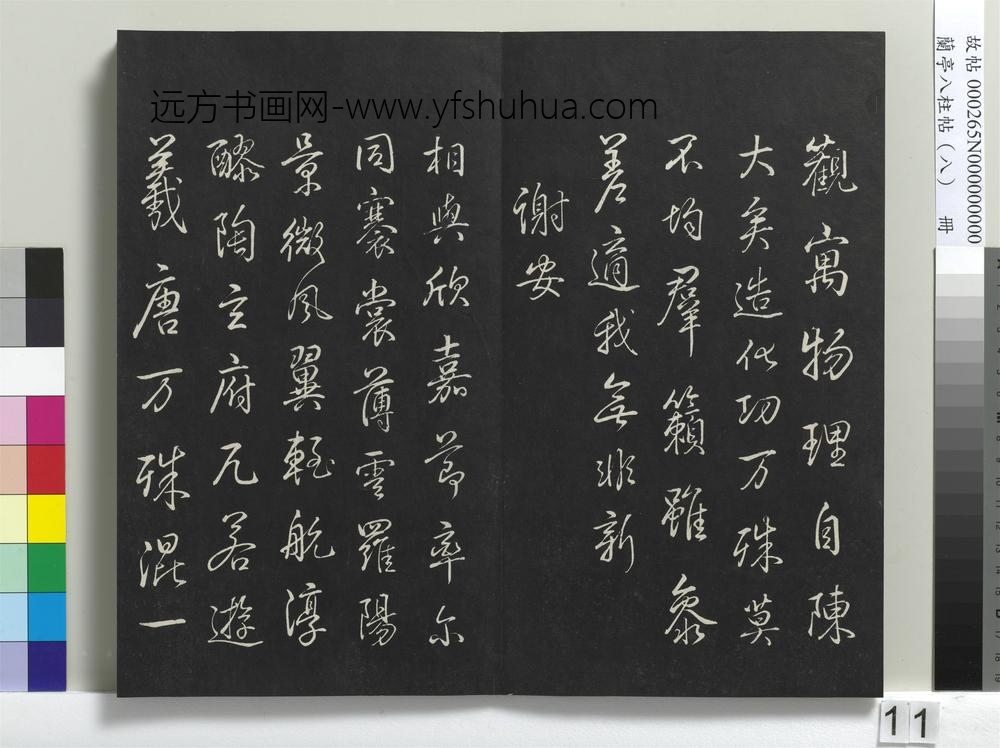 觀寓物理自陳
大矣造化功万殊莫
不均羣籟雖參
差適我無非新
謝安
相與欣嘉節率尔
同褰裳薄雲羅陽
景微風翼輕航淳
醪陶玄府兀若遊
羲唐万殊混一
远方书画网-www.yfshuhua.com
故帖 000265N000000000
蘭亭八柱帖（八） 冊
11